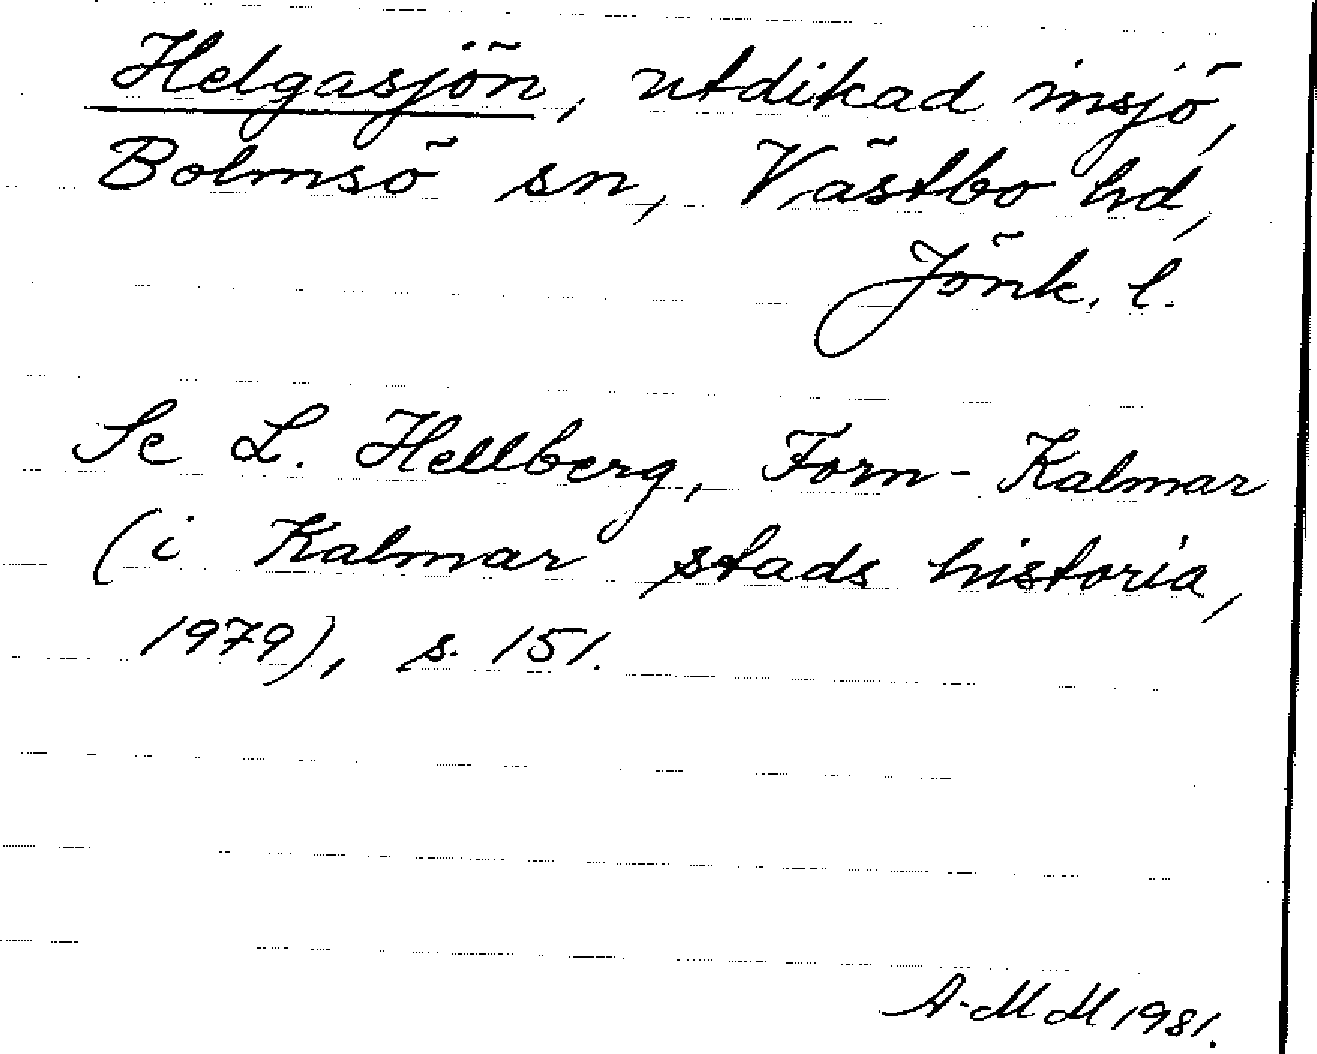 Helgasjön, utdikad insjö,
Bolmsö sn, Västbo hd,
Jönk. l.
Se L. Hellberg, Forn-Kalmar
(i Kalmar stads historia,
1979), s. 151.
A-MM 1981.